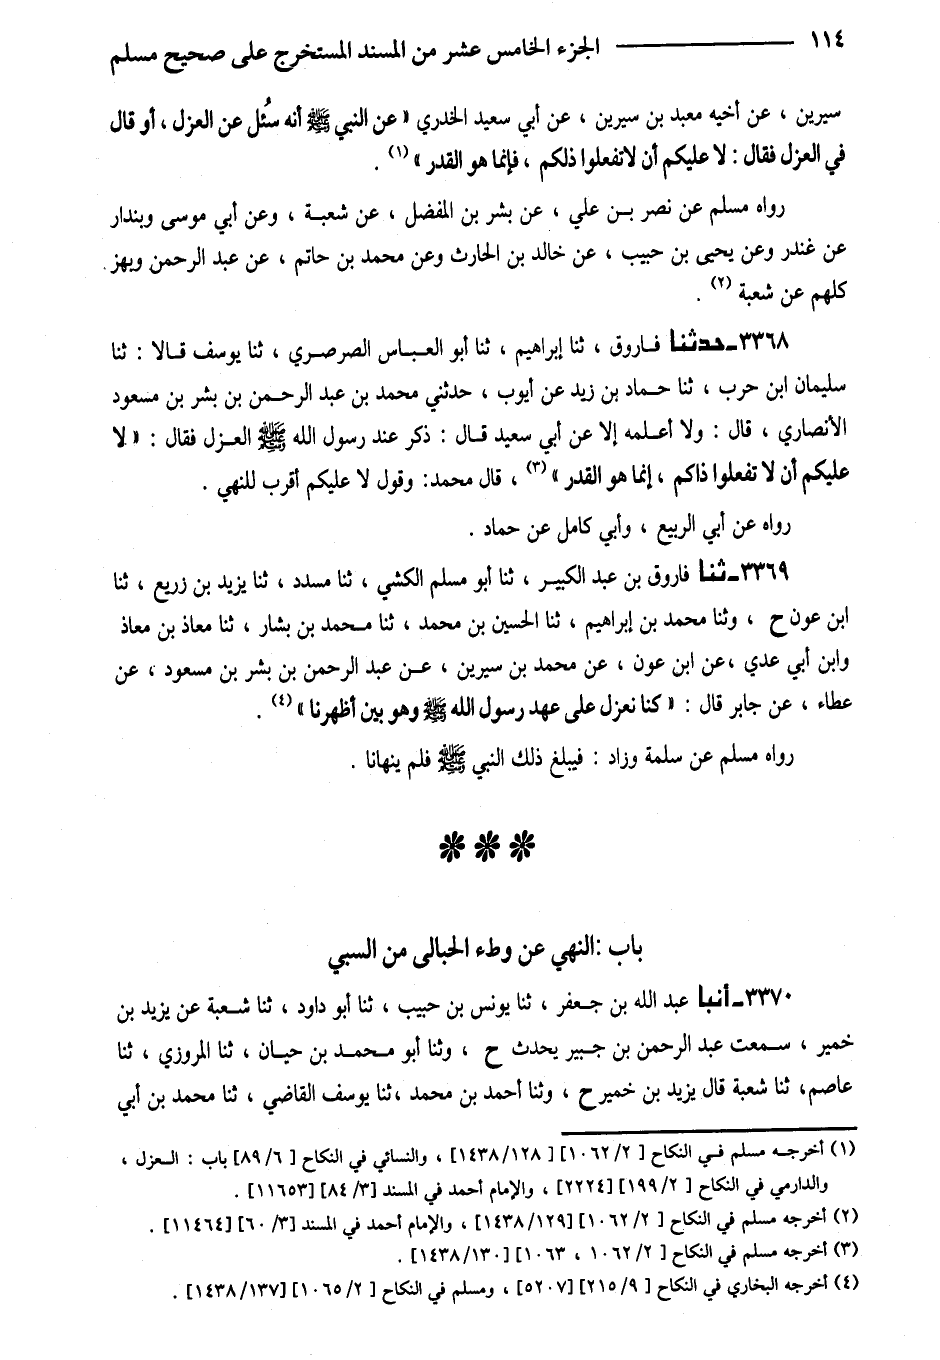 ١١٤ ــــــــــ الجزء الخامس عشر من المسند المستخرج على صحيح مسلم
سيرين ، عن أخيه معبد بن سيرين ، عن أبي سعيد الخدري « عن النبي ﷺ أنه سُئل عن العزل ، أو قال
في العزل فقال : لا عليكم أن لاتفعلوا ذلكم ، فإنما هو القدر » (١) .
رواه مسلم عن نصر بـن علي ، عن بشر بن المفضل ، عن شعبـة ، وعن أبي موسى وبندار
عن غندر وعن يحيى بن حبيب ، عن خالد بن الحارث وعن محمد بن حاتم ، عن عبد الرحمن وبهز .
كلهم عن شعبة (٢) .
٣٣٦٨ـ حدثنا فـاروق ، ثنا إبراهيم ، ثنا أبو العبـاس الصرصري ، ثنا يوسف قـالا : ثنا
سليمان ابن حرب ، ثنا حمـاد بن زيد عن أيوب ، حدثني محمد بن عبد الرحـمن بن بشر بن مسعود
الأنصاري ، قال : ولا أعـلمه إلا عن أبي سعيد قـال : ذكر عند رسول الله ﷺ العـزل فقال : « لا
عليكم أن لا تفعلوا ذاكم ، إنما هو القدر » (٣) ، قال محمد: وقول لا عليكم أقرب للنهي .
رواه عن أبي الربيع ، وأبي كامل عن حماد .
٣٣٦٩ـ ثنا فاروق بن عبد الكبيـر ، ثنا أبو مسلم الكشي ، ثنا مسدد ، ثنا يزيد بن زريع ، ثنا
ابن عون ح ، وثنا محمد بن إبراهيم ، ثنا الحسين بن محمد ، ثنا مـحمد بن بشار ، ثنا معاذ بن معاذ
وابن أبي عدي ،عن ابن عون ، عن محمد بن سيرين ، عـن عبد الرحمن بن بشر بن مسعود ، عن
عطاء ، عن جابر قال : « كنا نعزل على عهد رسول الله ﷺ وهو بين أظهرنا » (٤) .
رواه مسلم عن سلمة وزاد : فيبلغ ذلك النبي ﷺ فلم ينهانا .
❋ ❋ ❋
باب :النهي عن وطء الحبالى من السبي
٣٣٧٠ـ أنبا عبد الله بن جـعفر ، ثنا يونس بن حبيب ، ثنا أبو داود ، ثنا شـعبة عن يزيد بن
خمير ، سـمعت عبد الرحمن بن جـبير يحدث ح ، وثنا أبو مـحمـد بن حيـان ، ثنا المروزي ، ثنا
عاصم، ثنا شعبة قال يزيد بن خمير ح ، وثنا أحمد بن محمد ،ثنا يوسف القاضي ، ثنا محمد بن أبي
(١) أخرجـه مسلم فـي النكاح [ ١٠٦٢/٢] [ ١٤٣٨/١٢٨] ، والنسائي في النكاح [ ٨٩/٦] باب : العـزل ،
والدارمي في النكاح [ ١٩٩/٢] [٢٢٢٤] ، والإمام أحمد في المسند [٨٤/٣] [١١٦٥٣] .
(٢) أخرجه مسلم في النكاح [ ١٠٦٢/٢] [١٤٣٨/١٢٩] ، والإمام أحمد في المسند [٦٠/٣] [١١٤٦٤] .
(٣) أخرجه مسلم في النكاح [ ١٠٦٢/٢ ، ١٠٦٣] [١٤٣٨/١٣٠] .
(٤) أخرجه البخاري في النكاح [ ٢١٥/٩] [٥٢٠٧] ، ومسلم في النكاح [ ١٠٦٥/٢] [١٤٣٨/١٣٧] .